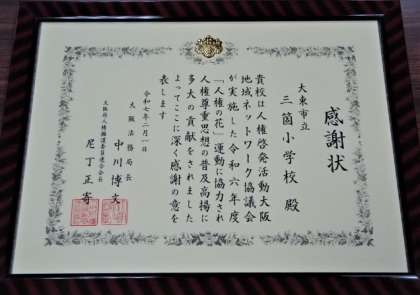 感謝状
大東市立
三箇小学校 殿
貴校は人権啓発活動大阪
地域ネットワーク協議会
が実施した令和六年度
「人権の花」運動に協力され
人権尊重思想の普及高揚に
多大の貢献をされました
よってここに深く感謝の意を
表します
令和七年二月一日
大阪法務局長
中川博文
大阪府人権擁護委員連合会長
尼丁正寄